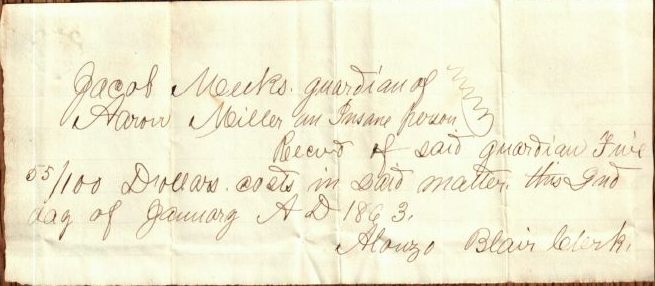 Jacob Meeks. guardian of
Aaron Miller an Insane person
Recevd of said guardian Five
55/100 Dollars. costs in said matter. this 2nd
day of January A D 1863.
Alonzo Blair Clerk.